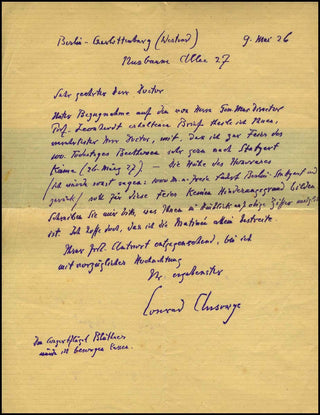 Berlin-Charlottenburg (Westend) 9. Mai 26
Nussbaum Allee 27
Sehr geehrter Herr Doctor
Unter Bezugnahme auf den von Herrn
Prof. Leonhardt erhaltenen Brief theile ich Ihnen,
Herr Doctor, mit, dass ich zur Feier des
100. Todestages Beethovens sehr gern nach Stuttgart
käme (26. März 27) Die Höhe des Honorares
(ich würde sagen: M. Fahrt Berlin-Stuttgart und
zurück) soll für diese Feier keinen Hinderungsgrund bilden
Schreiben Sie mir bitte, was Ihnen in Hinblick auf obige Ziffer möglich
ist. Ich hoffe doch, dass ich die Matinée allein bestreite.
Ihrer Antwort entgegensehend, bin ich
mit vorzüglicher Hochachtung
Ihr ergebenster
Conrad Ansorge
Den Concertflügel Blüthner
würde ich besorgen lassen.